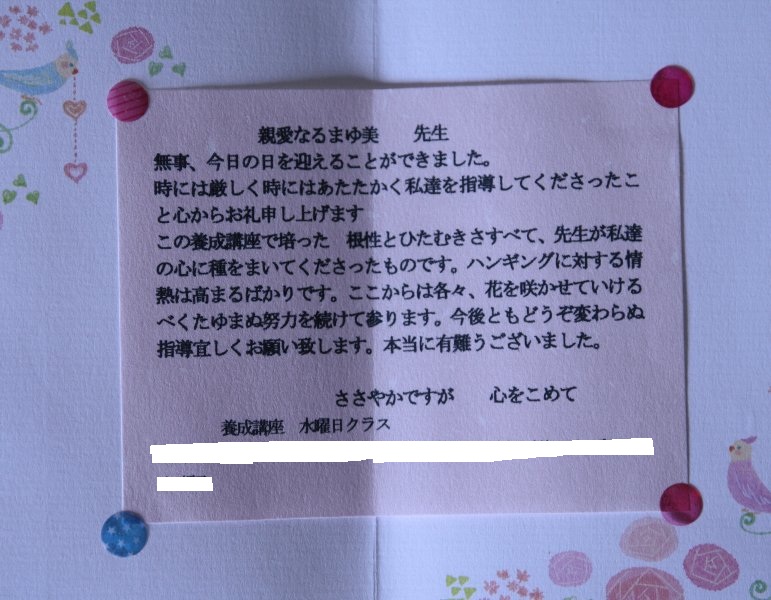 親愛なるまゆ美　　先生
無事、今日の日を迎えることができました。
時には厳しく時にはあたたかく私達を指導してくださったこ
と心からお礼申し上げます
この養成講座で培った　根性とひたむきさすべて、先生が私達
の心に種をまいてくださったものです。ハンギングに対する情
熱は高まるばかりです。ここからは各々、花を咲かせていける
べくたゆまぬ努力を続けて参ります。今後ともどうぞ変わらぬ
指導宜しくお願い致します。本当に有難うございました。
ささやかですが　　心をこめて
養成講座　水曜日クラス